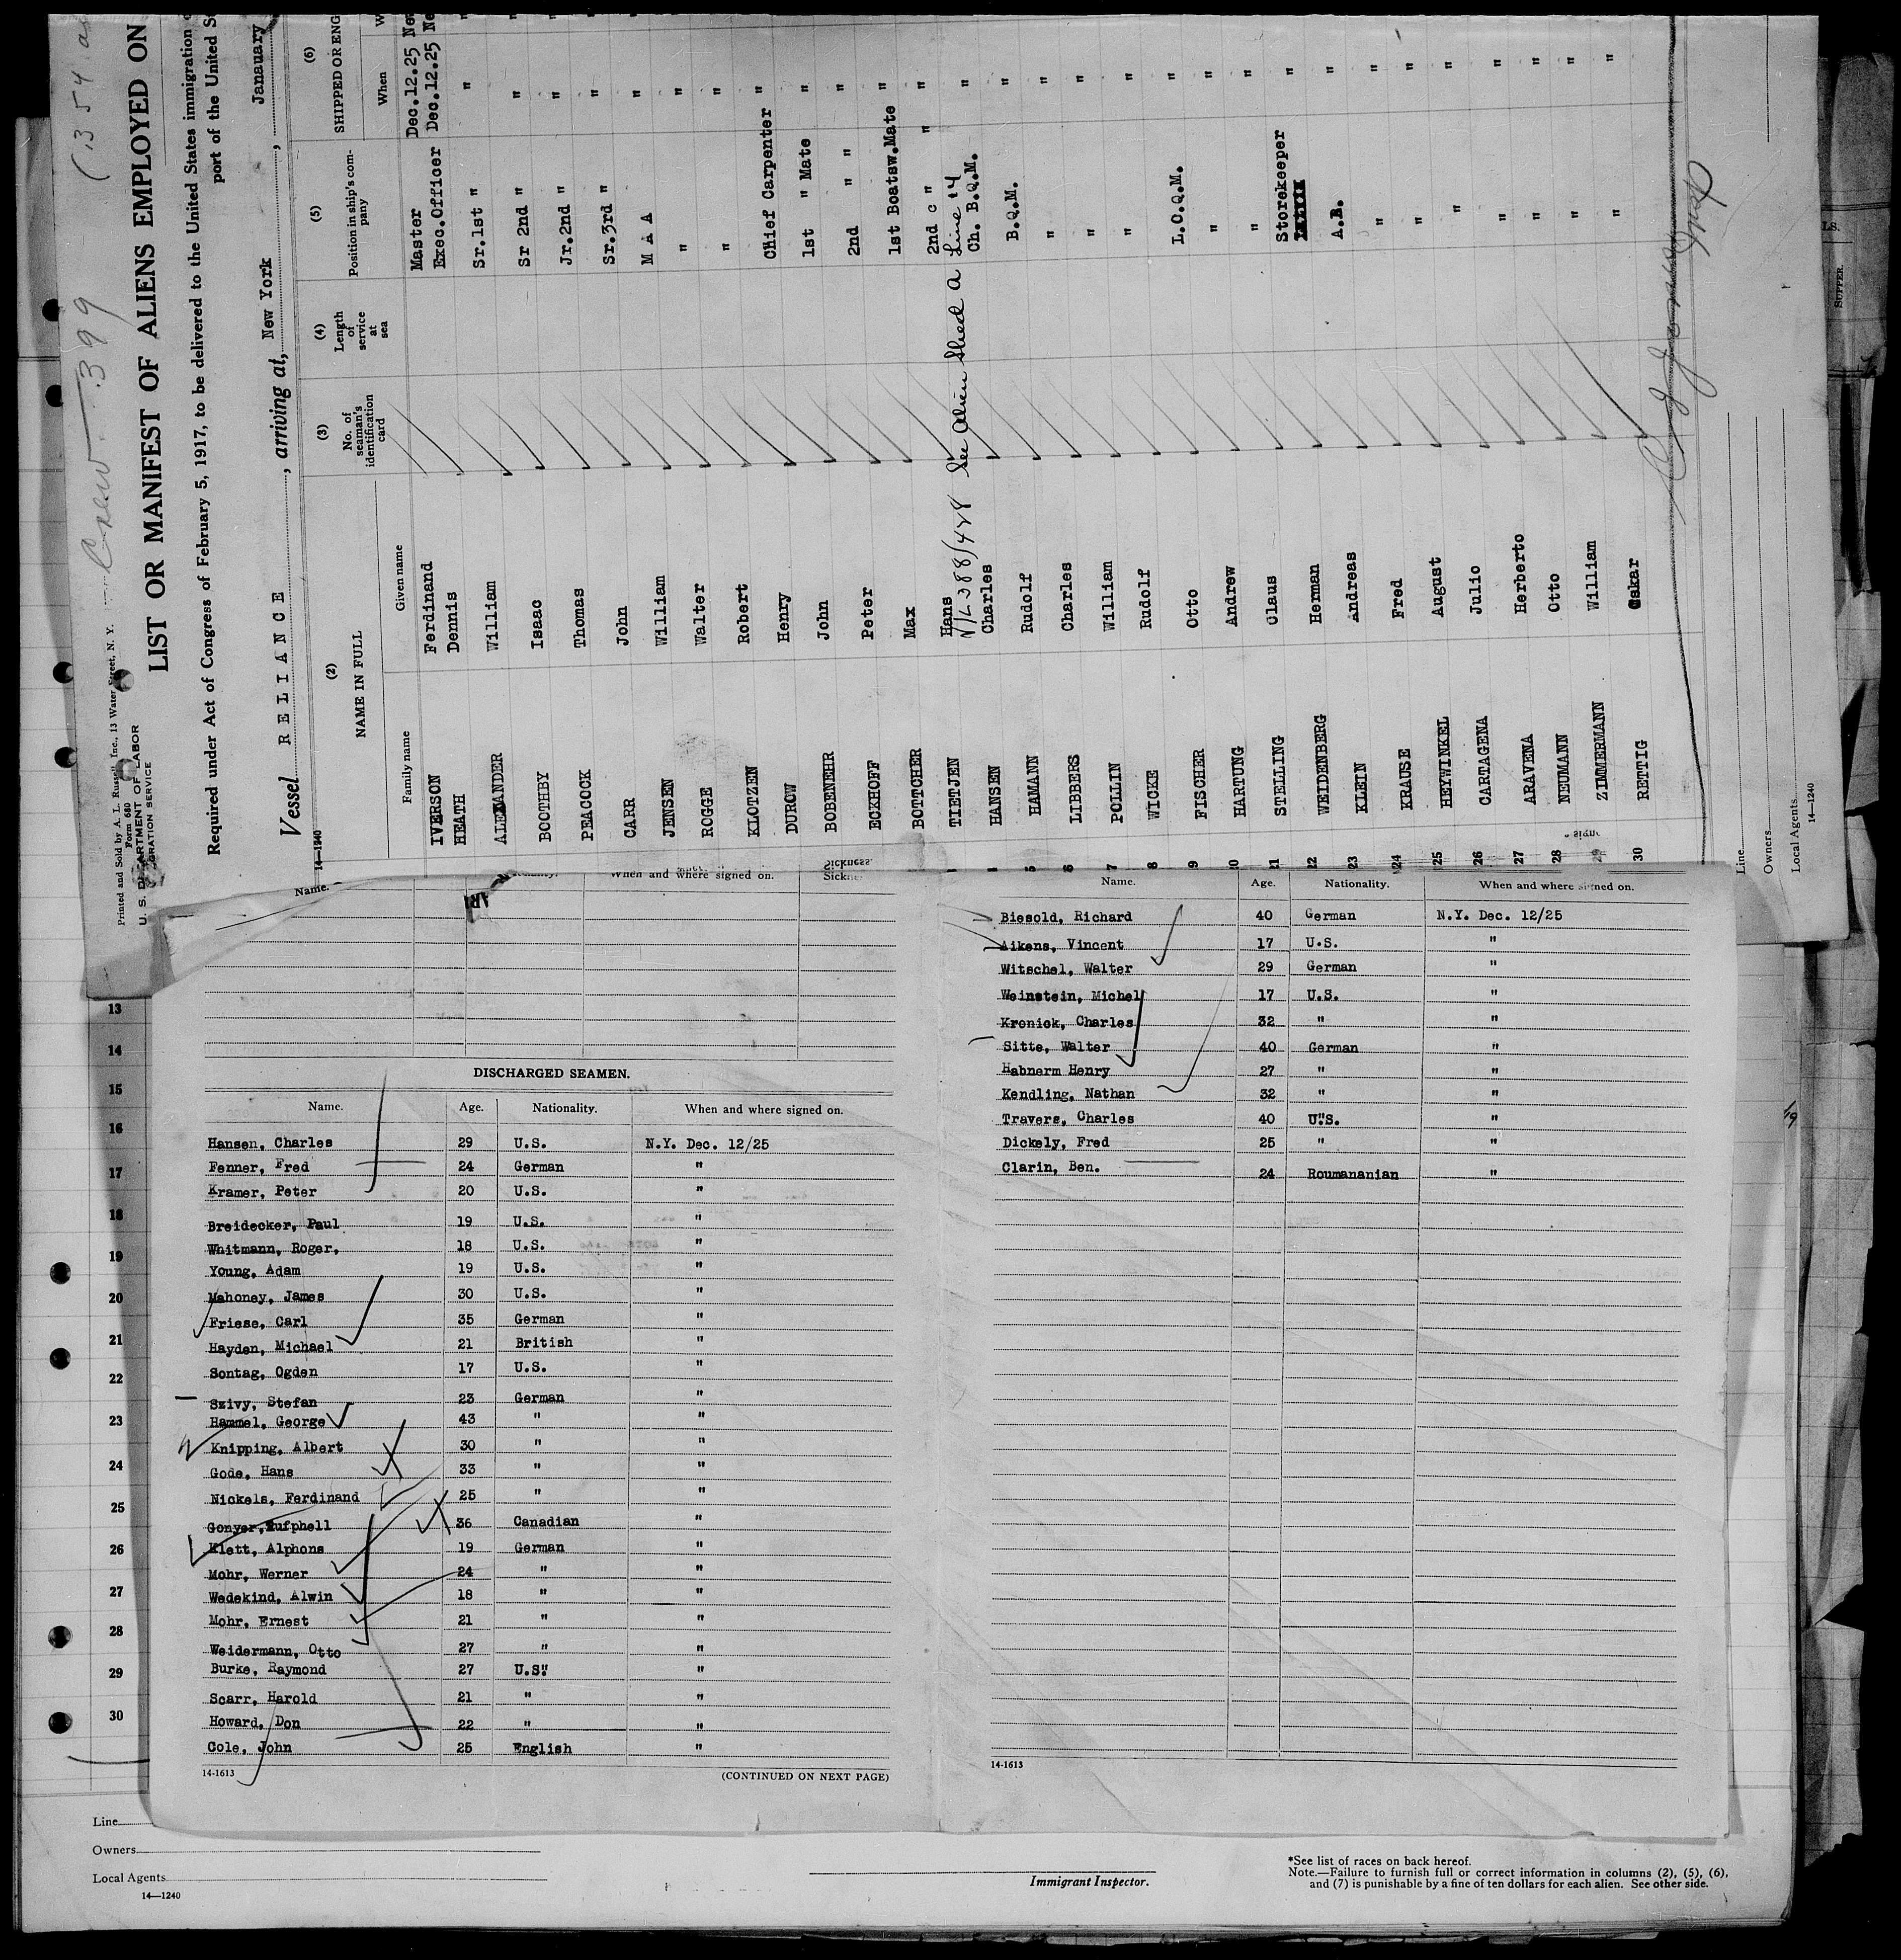 Crew 399 (354 a
Printed and Sold by A. L. Russell Inc., 13 Water Street, N. Y.
Form 680
U. S. DEPARTMENT OF LABOR
IMMIGRATION SERVICE
LIST OR MANIFEST OF ALIENS EMPLOYED ON
Required under Act of Congress of February 5, 1917, to be delivered to the United States immigration
port of the United
Vessel RELIANCE, arriving at, New York, Janauary
14—1240
(2) (3) (4) (5) (6)
NAME IN FULL No. of seaman's identification card Length of service at sea Position in ship's company SHIPPED OR ENG
Family name Given name When
IVERSON Ferdinand Master Dec.12.25
HEATH Dennis Exec.Officer Dec.12.25
ALEXANDER William Sr.1st " "
BOOTHBY Isaac Sr 2nd " "
PEACOCK Thomas Jr.2nd " "
CARR John Sr.3rd " "
JENSEN William M A A "
ROGGE Walter " "
KLOTZEN Robert " "
DUROW Henry Chief Carpenter "
BOBENEHR John 1st " Mate "
ECKHOFF Peter 2nd " " "
BOTTCHER Max 1st Boatsw.Mate "
TIETJEN Hans 2nd c " " "
See Alien Sheet a Line 14
HANSEN Charles Ch. B.Q.M. "
5 HAMANN Rudolf B.Q.M. "
6 LIBBERS Charles " "
7 POLLIN William " "
8 WICKE Rudolf " "
9 FISCHER Otto L.C.Q.M. "
10 HARTUNG Andrew " "
11 STELLING Claus " "
22 WEIDENBERG Herman Storekeeper "
23 KLEIN Andreas A.B. "
24 KRAUSE Fred " "
25 HEYWINKEL August " "
26 CARTAGENA Julio " "
27 ARAVENA Herberto " "
28 NEUMANN Otto " "
29 ZIMMERMANN William " "
30 RETTIG Oskar " "
Line
Owners
Local Agents
14—1240
SUPPER.
Name. When and where signed on. Sickness
13
14
15
16
17
18
19
20
21
22
23
24
25
26
27
28
29
30
DISCHARGED SEAMEN.
Name. Age. Nationality. When and where signed on.
Hansen, Charles 29 U.S. N.Y. Dec. 12/25
Fenner, Fred 24 German "
Kramer, Peter 20 U.S. "
Breidecker, Paul 19 U.S. "
Whitmann, Roger, 18 U.S. "
Young, Adam 19 U.S. "
Mahoney, James 30 U.S. "
Friese, Carl 35 German "
Hayden, Michael 21 British "
Sontag, Ogden 17 U.S. "
Szivy, Stefan 23 German "
Hammel, George 43 " "
Knipping, Albert 30 " "
Gode, Hans 33 " "
Nickels, Ferdinand 25 " "
Gonyer, Eufphell 36 Canadian "
Klett, Alphons 19 German "
Mohr, Werner 24 " "
Wedekind, Alwin 18 " "
Mohr, Ernest 21 " "
Weidermann, Otto 27 " "
Burke, Raymond 27 U.S." "
Scarr, Harold 21 " "
Howard, Don 22 " "
Cole, John 25 English "
14-1613 (CONTINUED ON NEXT PAGE)
Name. Age. Nationality. When and where signed on.
Biesold, Richard 40 German N.Y. Dec. 12/25
Aikens, Vincent 17 U.S. "
Witschel, Walter 29 German "
Weinstein, Michel 17 U.S. "
Kronick, Charles 32 " "
Sitte, Walter 40 German "
Habnerm Henry 27 " "
Kendling, Nathan 32 " "
Travers, Charles 40 U.S. "
Dickely, Fred 25 " "
Clarin, Ben. 24 Roumananian "
14-1613
Line
Owners
Local Agents
14—1240
Immigrant Inspector.
*See list of races on back hereof.
Note.—Failure to furnish full or correct information in columns (2), (5), (6),
and (7) is punishable by a fine of ten dollars for each alien. See other side.